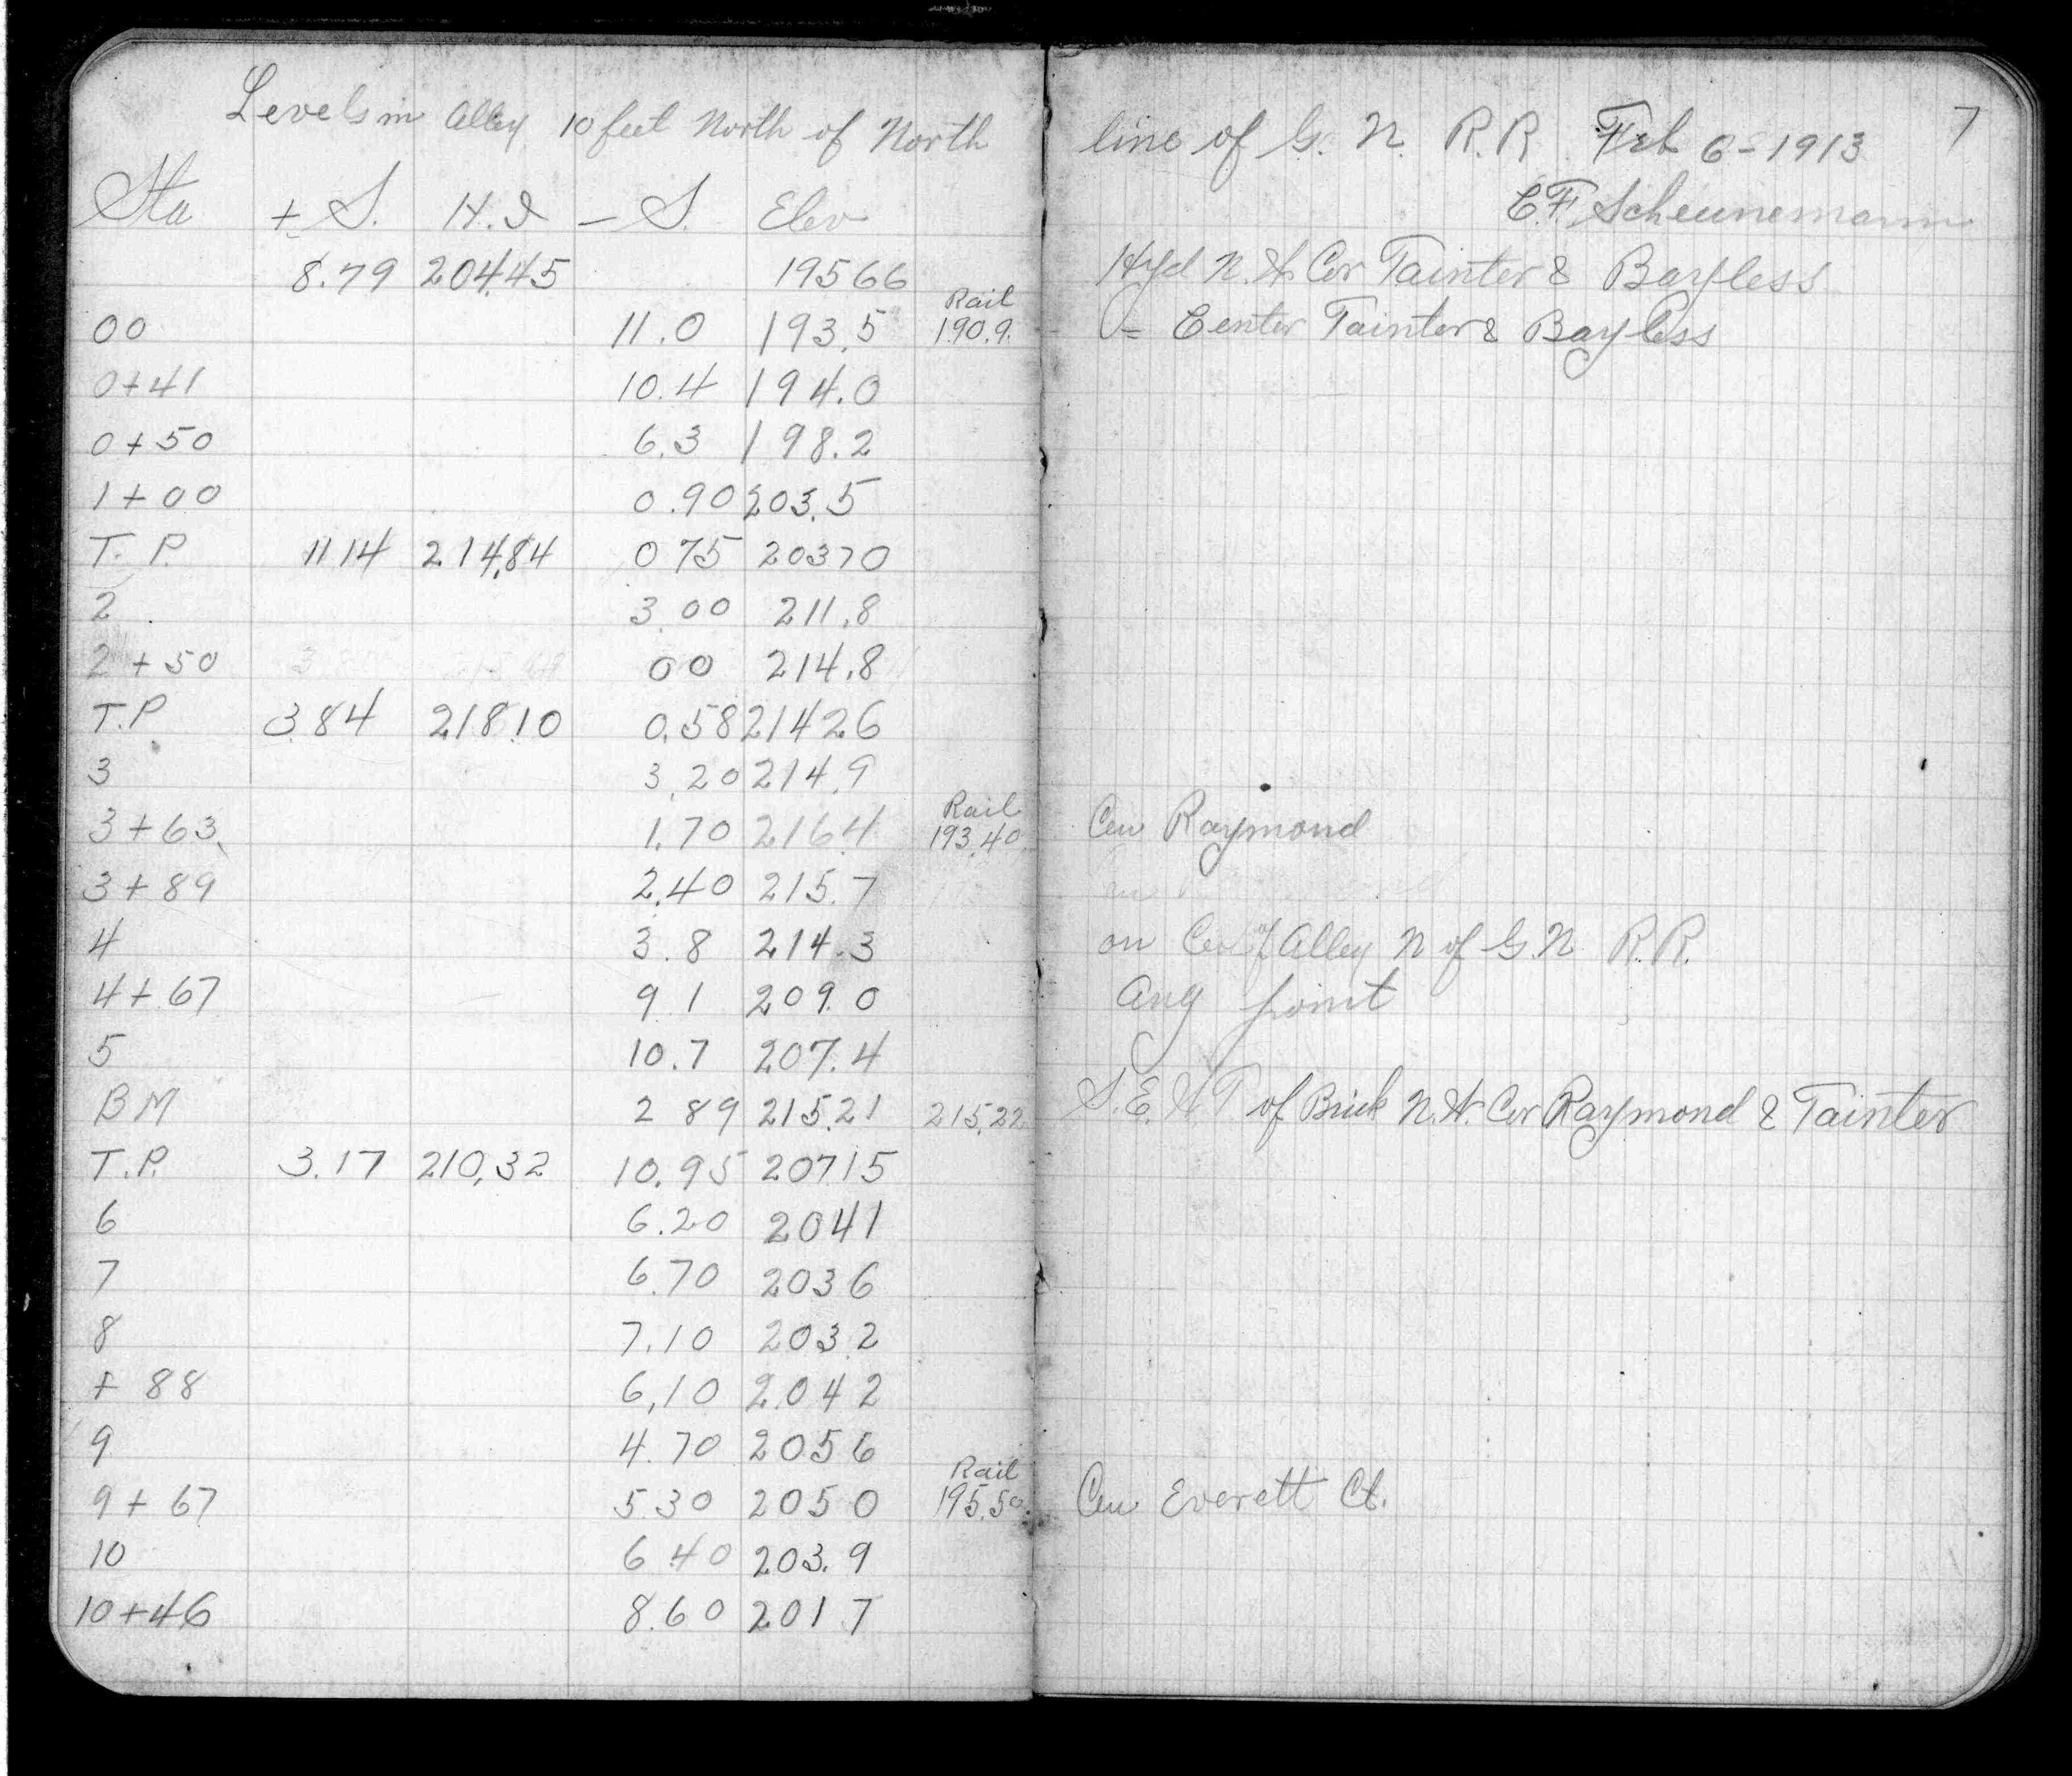 Levels in Alley 10 feet North of North line of G. N. R.R Feb 6-1913 7
C.F. Scheunemann
Sta + S. H.I - S. Elev
8.79 204.45 195 66 Hyd N.W. Cor Tainter & Bayless
00 11.0 193.5 Rail 190.9. 0 = Center Tainter & Bayless
0+41 10.4 194.0
0+50 6.3 198.2
1+00 0.90 203.5
T.P. 11 14 214.84 0 75 203 70
2 3.00 211.8
2+50 00 214.8
T.P 3.84 218.10 0.58 214 26
3 3.20 214.9
3+63 1.70 216.4 Rail 193.40 Cen Raymond
3+89 2.40 215.7
4 3.8 214.3 on Cen of Alley N of G.N R.R.
4+67 9 1 209.0 Ang point
5 10.7 207.4
BM 2 89 215.21 215.22 S.E. W.T. of Brick N.W. Cor Raymond & Tainter
T.P. 3.17 210.32 10.95 207 15
6 6.20 204 1
7 6.70 203 6
8 7.10 203.2
+ 88 6.10 204 2
9 4.70 205 6
9+67 5.30 205 0 Rail 195.50. Cen Everett Ct.
10 6 40 203.9
10+46 8.60 201 7